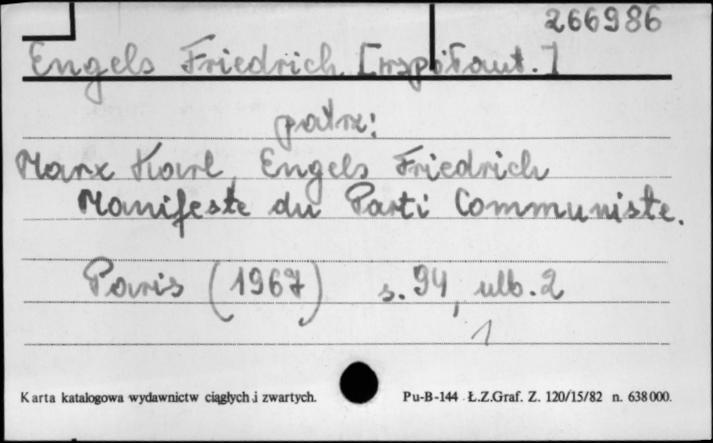 266986
Engels Friedrich [współaut.]
patrz:
Marx Karl, Engels Friedrich
Manifeste du Parti Communiste.
Paris (1967) s. 94, ulb. 2
1
Karta katalogowa wydawnictw ciągłych i zwartych. Pu-B-144 Ł.Z.Graf. Z. 120/15/82 n. 638000.